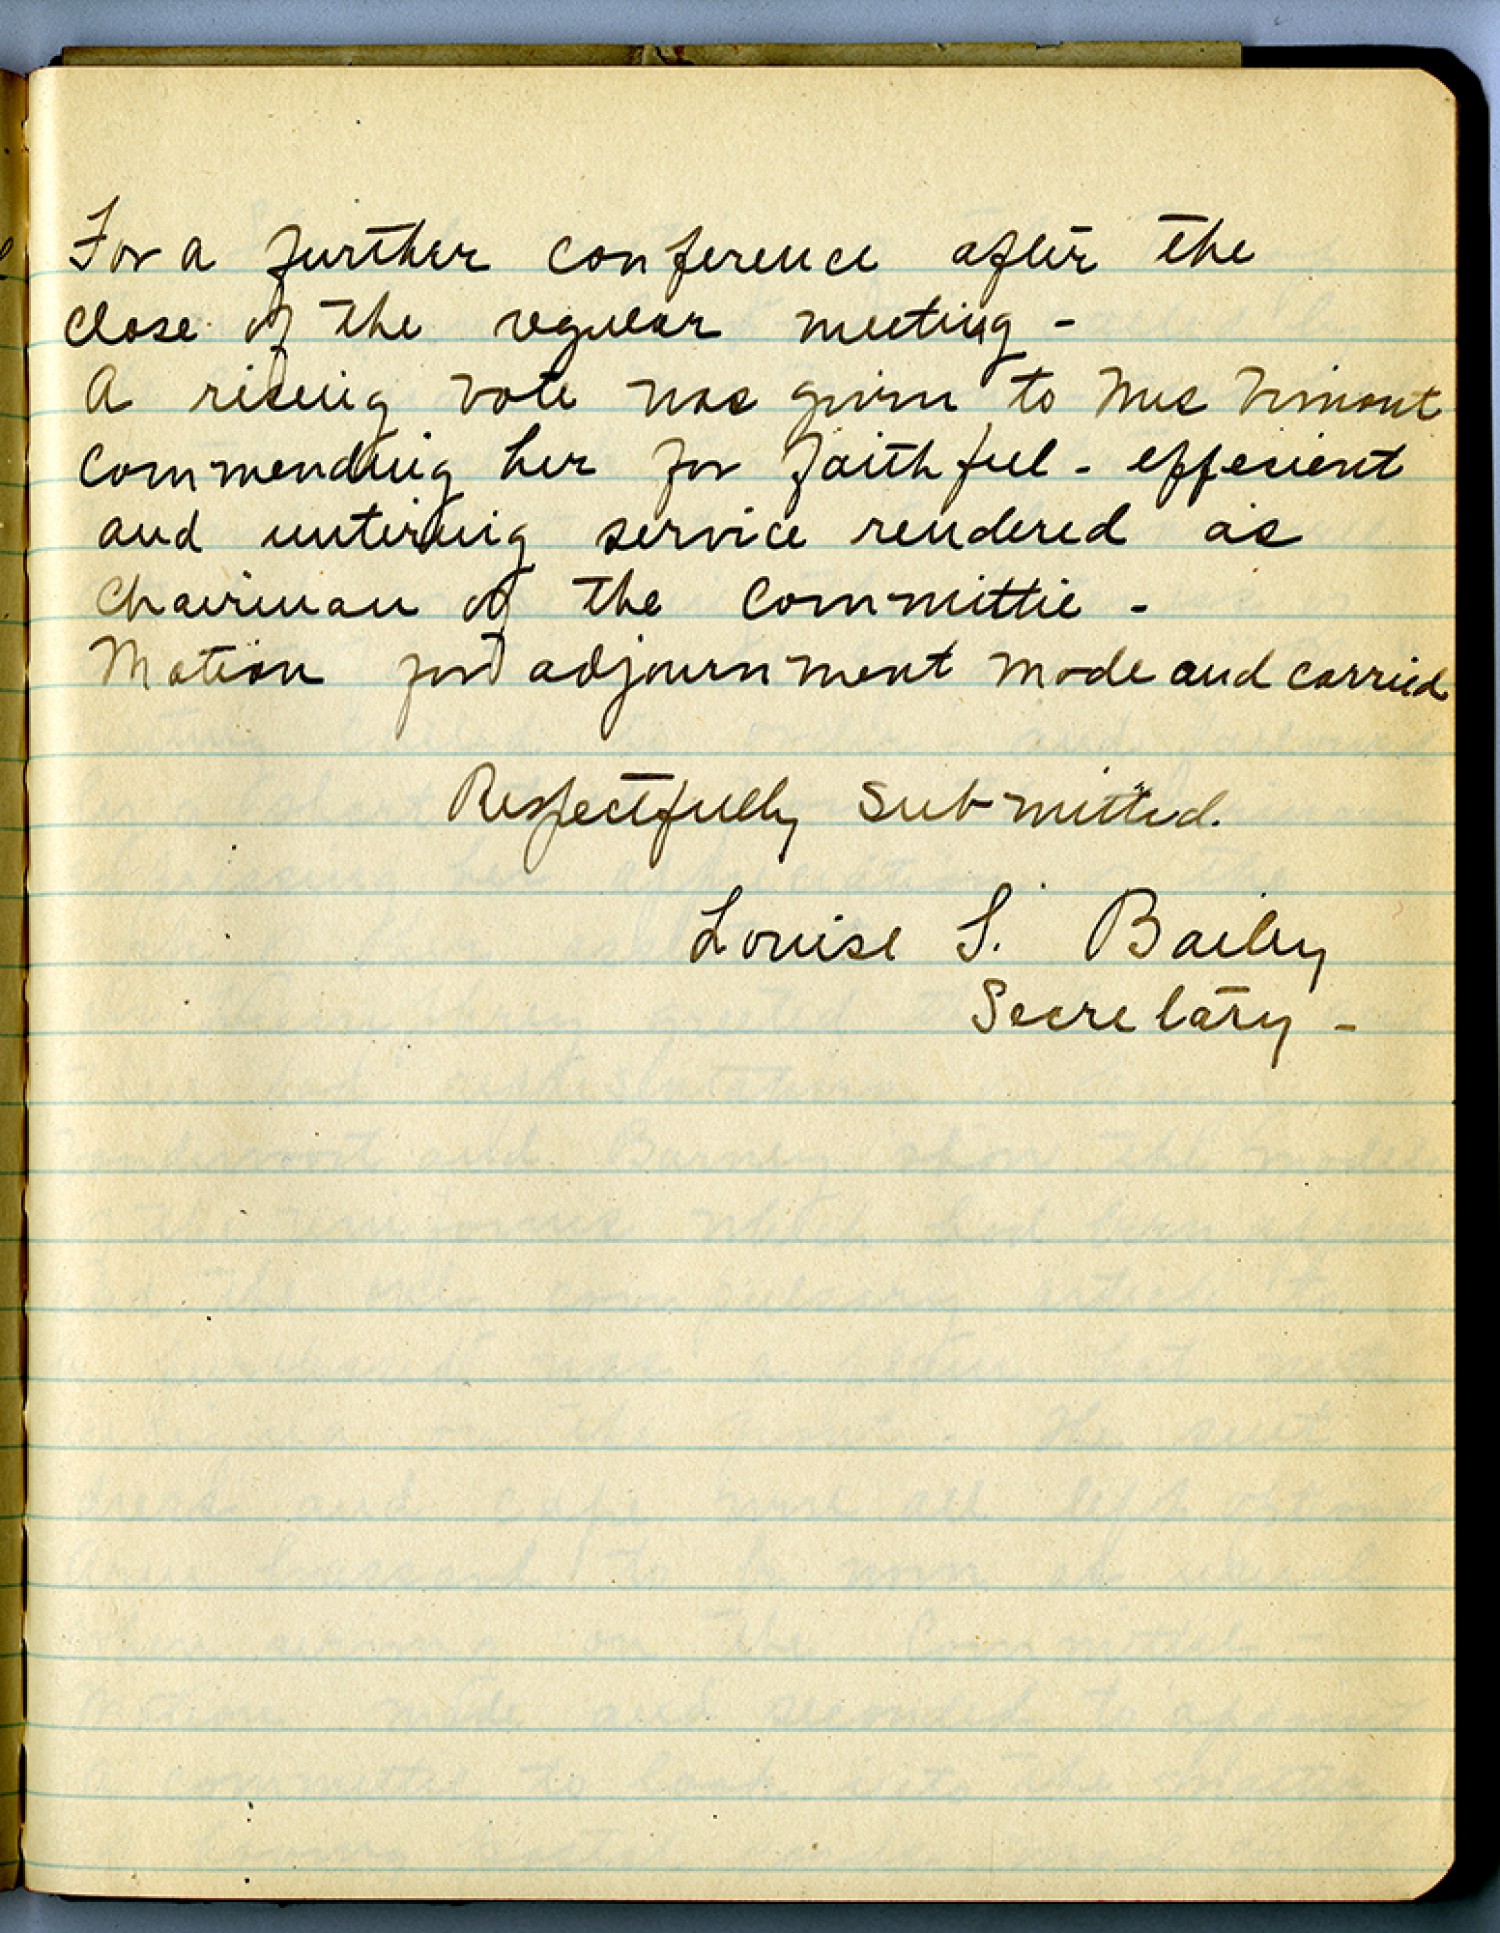 For a further conference after the
close of the regular meeting -
A rising vote was given to Mrs Vimont
commending her for faithful - effecient
and untiring service rendered as
Chairman of the Committie -
Motion for adjournment made and carried
Respectfully submitted.
Louise S. Bailey
Secretary -